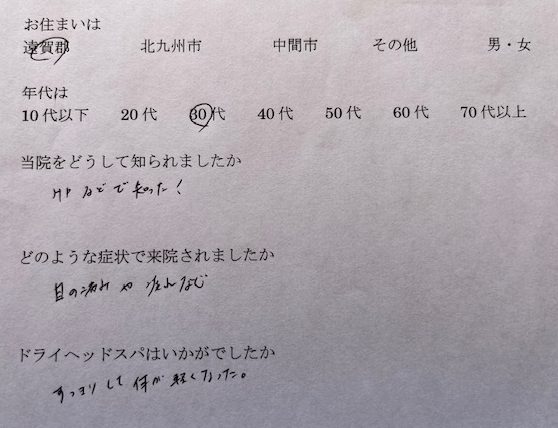 お住まいは
遠賀郡 北九州市 中間市 その他 男・女
年代は
10代以下 20代 30代 40代 50代 60代 70代以上
当院をどうして知られましたか
HPなどで知った！
どのような症状で来院されましたか
目の痛みや疲れなど
ドライヘッドスパはいかがでしたか
すっきりして体が軽くなった。